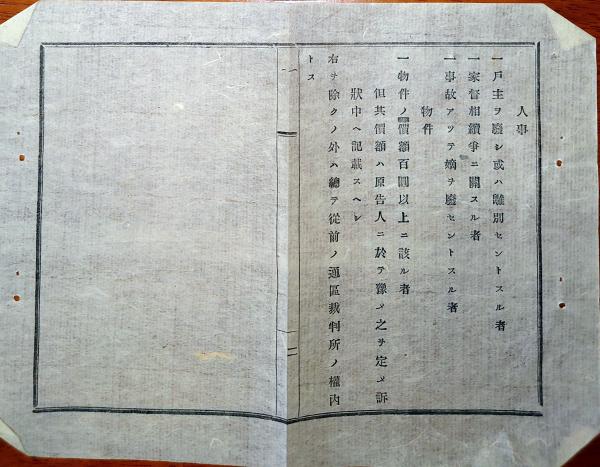 人事
一戸主ヲ廢シ或ハ離別セントスル者
一家督相續爭ニ關スル者
一事故アツテ嫡ヲ廢セントスル者
物件
一物件ノ價額百圓以上ニ該ル者
但其價額ハ原告人ニ於テ豫メ之ヲ定メ訴
狀中ヘ記載スヘシ
右ヲ除クノ外ハ總テ從前ノ通區裁判所ノ權内
トス